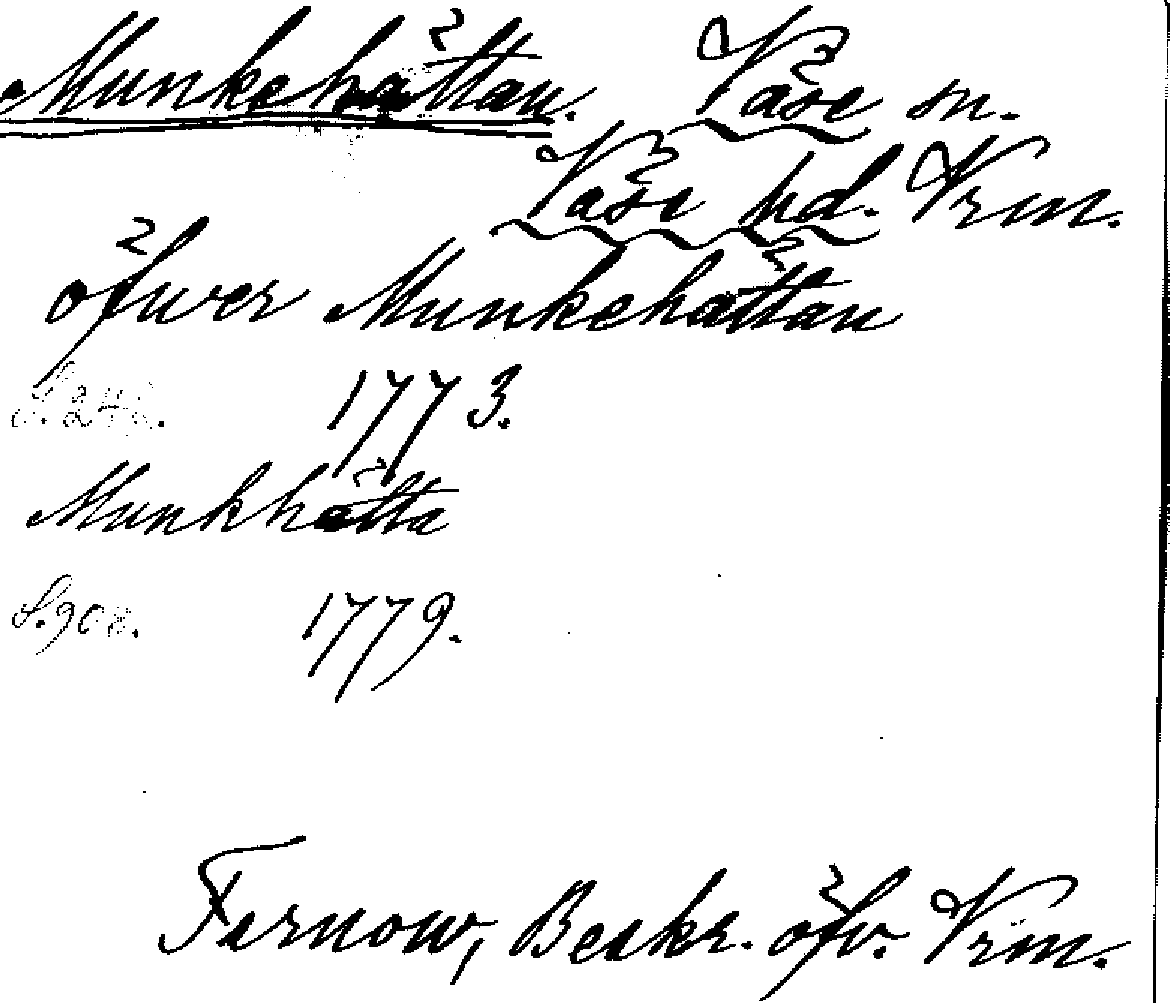 Munkehättan. Väse sn.
Väse hd. Vrm.
öfwer Munkehättan
S. 242. 1773.
Munkhätta
S. 908. 1779.
Fernow, Beskr. öfv. Vrm.